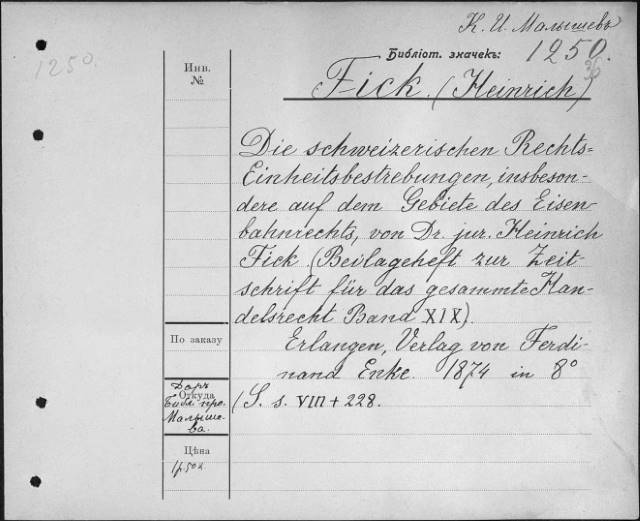 К. И. Малышевъ
1250.
Библіот. значекъ: 1250.
Инв.
№
Fick. (Heinrich)
Die schweizerischen Rechts=
Einheitsbestrebungen, insbeson-
dere auf dem Gebiete des Eisen-
bahnrechts, von Dr. jur. Heinrich
Fick. (Beilageheft zur Zeit-
schrift für das gesammte Han-
delsrecht Band XIX).
Erlangen, Verlag von Ferdi-
nand Enke. 1874 in 8°
(S. s. VIII + 228.
По заказу
Даръ
Откуда
Библ. про.
Малыше-
ва.
Цѣна
1р.50к.